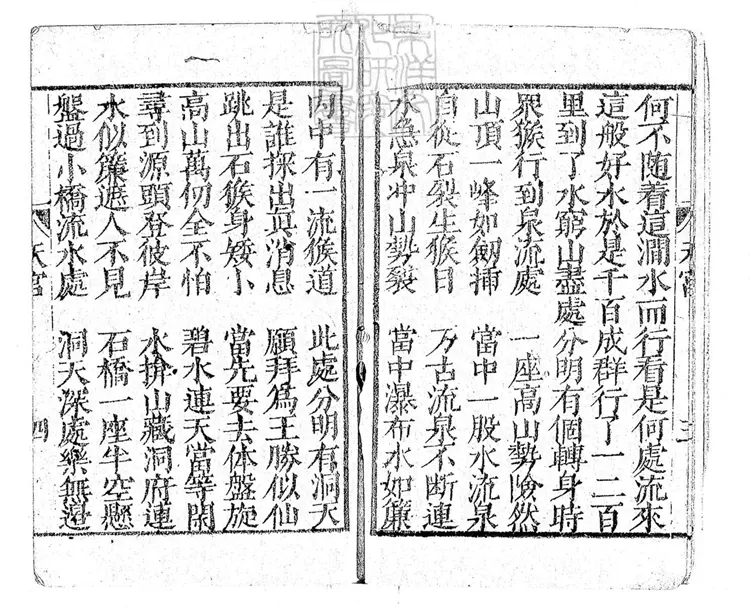 何不随着這澗水而行看是何處流來
這般好水於是千百成群行了一二百
里到了水窮山盡處分明有個轉身時
衆猴行到泉流處 一座高山勢險然
山頂一峰如劔揷 當中一股水流泉
自從石裂生猴日 万古流泉不断連
水急泉冲山勢裂 當中瀑布水如簾
天宮 三
内中有一流猴道 此處分明有洞天
是誰探出眞消息 願拜爲王勝似仙
跳出石猴身矮小 當先要去体盤旋
高山萬仞全不怕 碧水連天當等閑
尋到源頭登彼岸 水拚山藏洞府連
水似簾遮人不見 石橋一座半空懸
盤過小橋流水處 洞天深處樂無邉
天宮 四